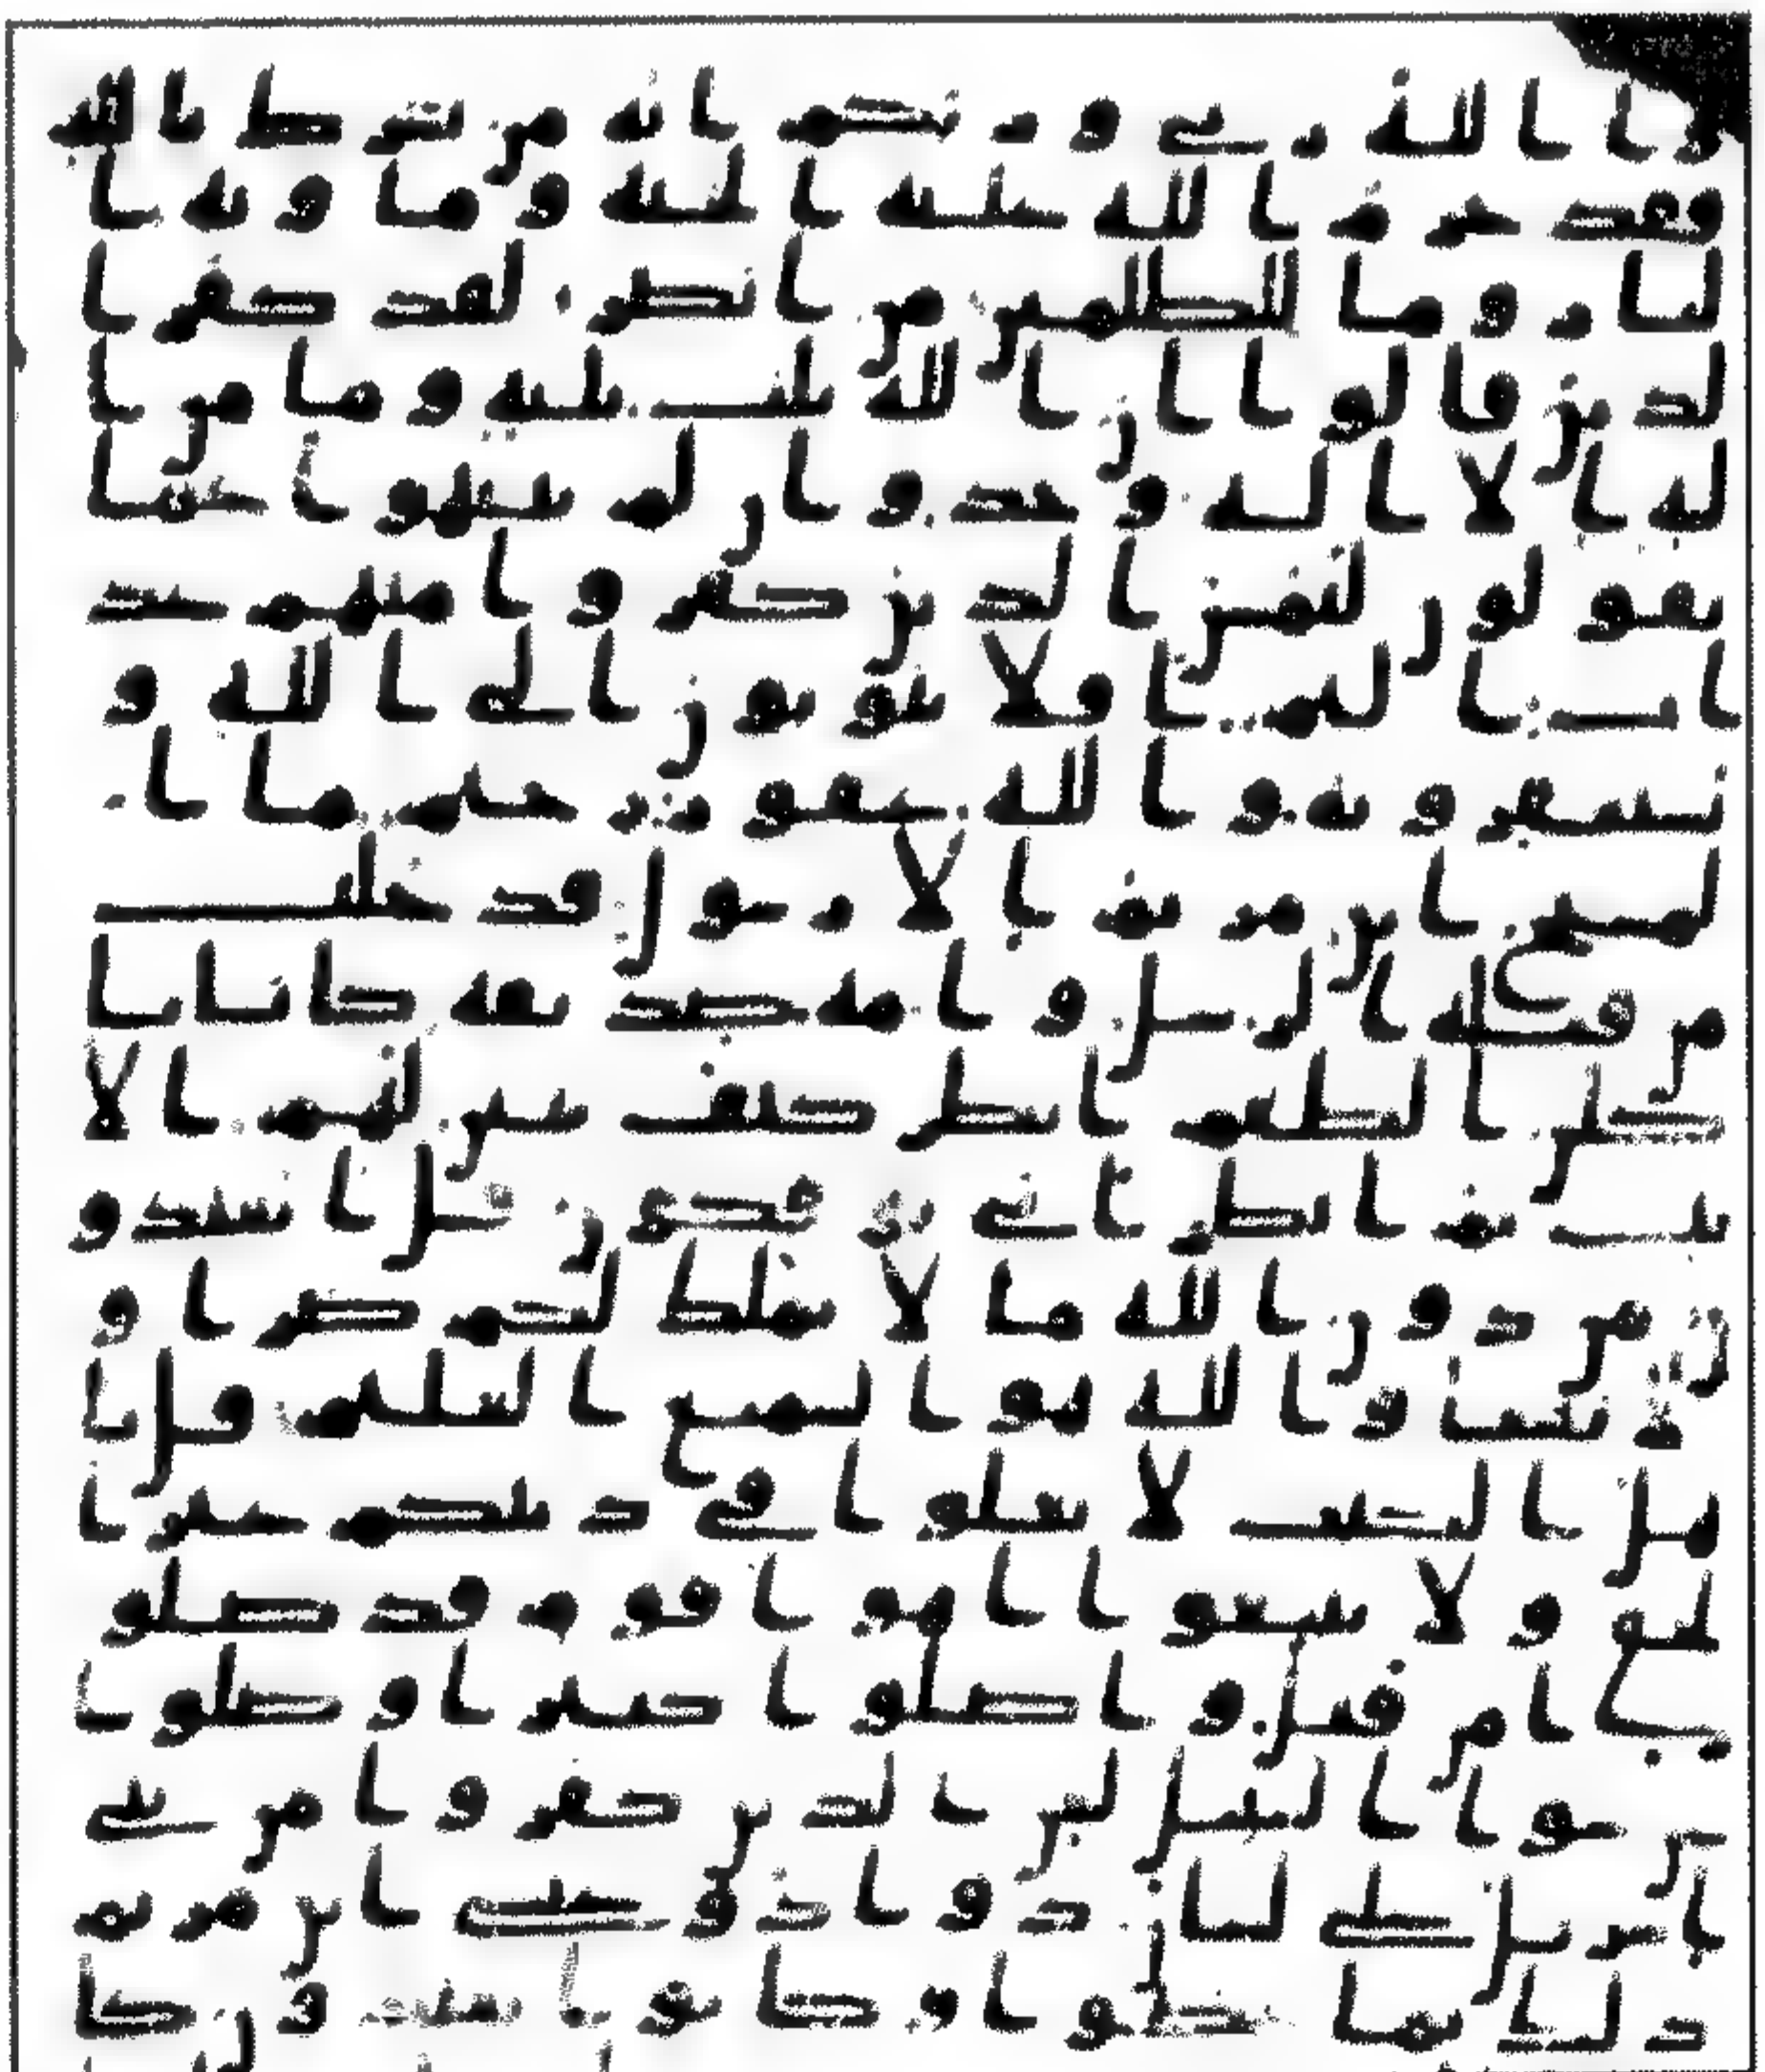 وا الله ربي و ربكم انه من يشرك بالله
فقد حرم الله عليه الجنه و ماويه ا
لنار و ما للظلمين من انصر لقد كفر ا
لذين قالوا ان الله ثلث ثلثه وما من ا
له الا اله وحد وان لم ينتهوا عما
يقولون ليمسن الذين كفروا منهم عذ
اب اليم افلا يتوبون الى الله و
يستغفرونه والله غفور رحيم ما ا
لمسيح ابن مريم الا رسول قد خلت
من قبله الرسل وامه صديقه كانا يا
كلن الطعم انظر كيف نبين لهم الا
يت ثم انظر انى يوفكون قل اتعبدو
ن من دون الله ما لا يملك لكم ضرا و
لا نفعا والله هو السميع العليم قل يا
هل الكتب لا تغلوا في دينكم غير ا
لحق ولا تتبعوا اهوا قوم قد ضلو
ا من قبل واضلوا كثيرا وضلوا
عن سوا السبيل لعن الذين كفروا من بني
اسريل على لسان دواد وعيسى ابن مريم
ذلك بما عصوا وكانوا يعتدون كا